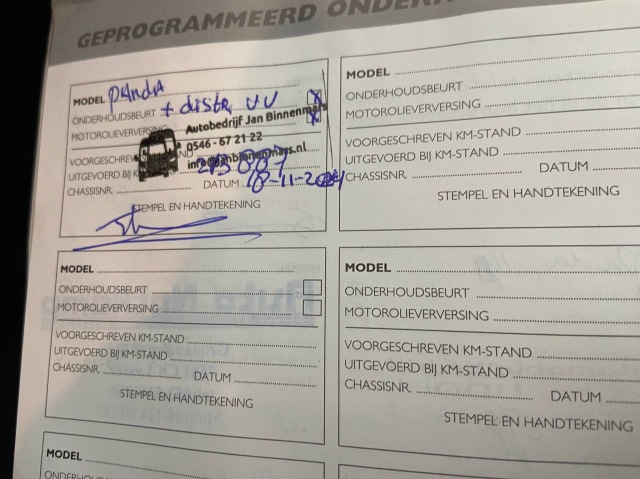 GEPROGRAMMEERD
MODEL PANDA
ONDERHOUDSBEURT + distr VV
MOTOROLIEVERVERSING
Autobedrijf Jan Binnenmars
0546 - 67 21 22
VOORGESCHREVEN KM-STAND
info@janbinnenmars.nl
UITGEVOERD BIJ KM
CHASSISNR. DATUM 18-11-2004
STEMPEL EN HANDTEKENING
MODEL
ONDERHOUDSBEURT
MOTOROLIEVERVERSING
VOORGESCHREVEN KM-STAND
UITGEVOERD BIJ KM-STAND
CHASSISNR. DATUM
STEMPEL EN HANDTEKENING
MODEL
ONDERHOUDSBEURT
MOTOROLIEVERVERSING
VOORGESCHREVEN KM-STAND
UITGEVOERD BIJ KM-STAND
CHASSISNR. DATUM
STEMPEL EN HANDTEKENING
MODEL
ONDERHOUDSBEURT
MOTOROLIEVERVERSING
VOORGESCHREVEN KM-STAND
UITGEVOERD BIJ KM-STAND
CHASSISNR. DATUM
STEMPEL EN HANDTEKENING
MODEL
MODEL